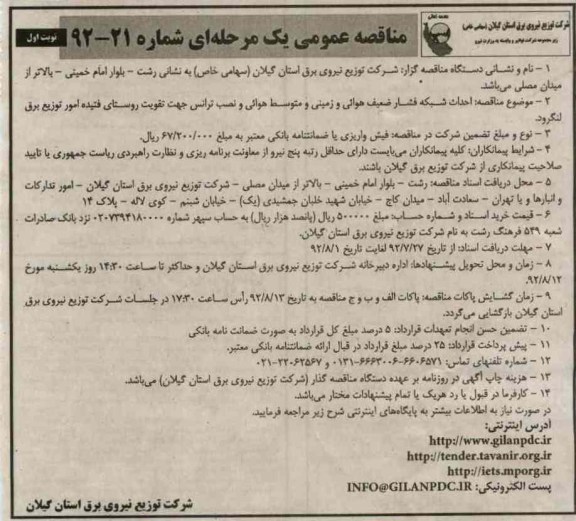 شرکت توزیع نیروی برق استان گیلان (سهامی خاص)
مناقصه عمومی یک مرحله‌ای شماره ۲۱-۹۲
نوبت اول
۱ – نام و نشانی دستگاه مناقصه گزار: شرکت توزیع نیروی برق استان گیلان (سهامی خاص) به نشانی رشت – بلوار امام خمینی – بالاتر از
میدان مصلی می‌باشد.
۲ – موضوع مناقصه: احداث شبکه فشار ضعیف هوائی و زمینی و متوسط هوائی و نصب ترانس جهت تقویت روستای فتیده امور توزیع برق
لنگرود.
۳ – نوع و مبلغ تضمین شرکت در مناقصه: فیش واریزی یا ضمانتنامه بانکی معتبر به مبلغ ۶۷/۲۰۰/۰۰۰ ریال.
۴ – شرایط پیمانکاران: کلیه پیمانکاران می‌بایست دارای حداقل رتبه پنج نیرو از معاونت برنامه ریزی و نظارت راهبردی ریاست جمهوری یا تایید
صلاحیت پیمانکاری از شرکت توزیع برق گیلان باشند.
۵ – محل دریافت اسناد مناقصه: رشت – بلوار امام خمینی – بالاتر از میدان مصلی – شرکت توزیع نیروی برق استان گیلان – امور تدارکات
و انبارها و یا تهران – سعادت آباد – میدان کاج – خیابان شهید خلبان جمشیدی (یک) – خیابان شبنم – کوی لاله – پلاک ۱۴
۶ – قیمت خرید اسناد و شماره حساب: مبلغ ۵۰۰۰۰۰ ریال (پانصد هزار ریال) به حساب سپهر شماره ۰۲۰۷۳۹۴۱۸۰۰۰۰ نزد بانک صادرات
شعبه ۵۴۹ فرهنگ رشت به نام شرکت توزیع نیروی برق استان گیلان.
۷ – مهلت دریافت اسناد: از تاریخ ۹۲/۷/۲۷ لغایت تاریخ ۹۲/۸/۱
۸ – زمان و محل تحویل پیشنهادها: اداره دبیرخانه شرکت توزیع نیروی برق استان گیلان و حداکثر تا ساعت ۱۴:۳۰ روز یکشنبه مورخ
۹۲/۸/۱۲.
۹ – زمان گشایش پاکات مناقصه: پاکات الف و ب و ج مناقصه به تاریخ ۹۲/۸/۱۳ رأس ساعت ۱۷:۳۰ در جلسات شرکت توزیع نیروی برق
استان گیلان بازگشایی می‌گردد.
۱۰ – تضمین حسن انجام تعهدات قرارداد: ۵ درصد مبلغ کل قرارداد به صورت ضمانت نامه بانکی
۱۱ – پیش پرداخت قرارداد: ۲۵ درصد مبلغ قرارداد در قبال ارائه ضمانتنامه بانکی معتبر.
۱۲ – شماره تلفنهای تماس: ۶۶۰۶۵۷۱-۶۶۶۳۰۰۶-۰۱۳۱ و ۲۲۰۶۲۵۶۷-۰۲۱
۱۳ – هزینه چاپ آگهی در روزنامه بر عهده دستگاه مناقصه گذار (شرکت توزیع نیروی برق استان گیلان) می‌باشد.
۱۴ – کارفرما در قبول یا رد هریک یا تمام پیشنهادات مختار می‌باشد.
در صورت نیاز به اطلاعات بیشتر به پایگاه‌های اینترنتی شرح زیر مراجعه فرمایید.
آدرس اینترنتی:
http://www.gilanpdc.ir
http://tender.tavanir.org.ir
http://iets.mporg.ir
پست الکترونیکی: INFO@GILANPDC.IR
شرکت توزیع نیروی برق استان گیلان